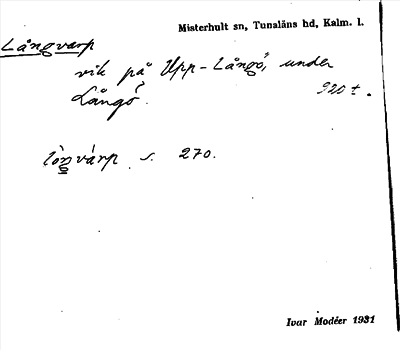 Misterhult sn, Tunaläns hd, Kalm. l.
Långvarp
vik på Upp-Långö, under
Långö. 920 t.
lòŋvárp s. 270.
Ivar Modéer 1931